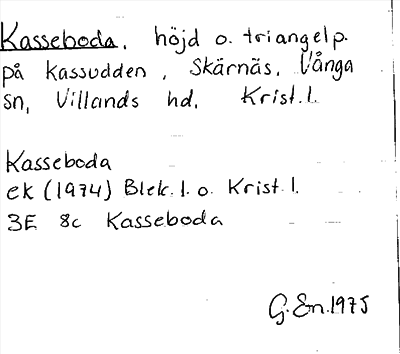 Kasseboda, höjd o. triangelp.
på Kassudden, Skärnäs, Vånga
sn, Villands hd, Krist. l.
Kasseboda
ek (1974) Blek. l. o. Krist. l.
3E 8c Kasseboda
G. En. 1975